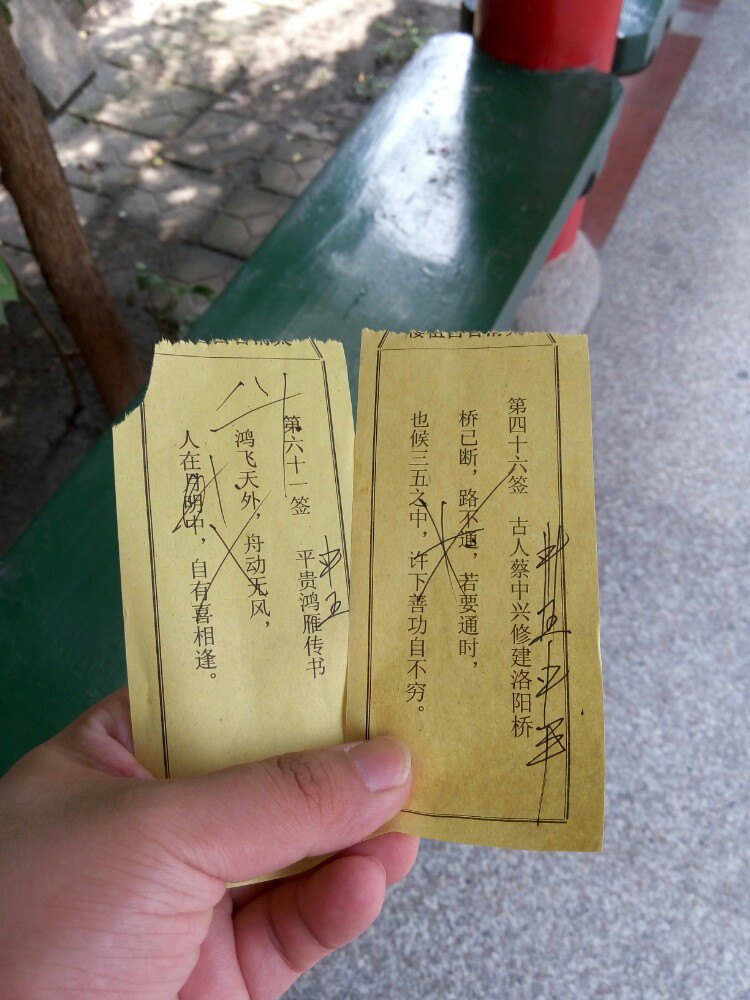 第六十一签 平贵鸿雁传书
鸿飞天外，舟动无风，
人在月明中，自有喜相逢。
第四十六签 古人蔡中兴修建洛阳桥
桥已断，路不通，若要通时，
也候三五之中，许下善功自不穷。